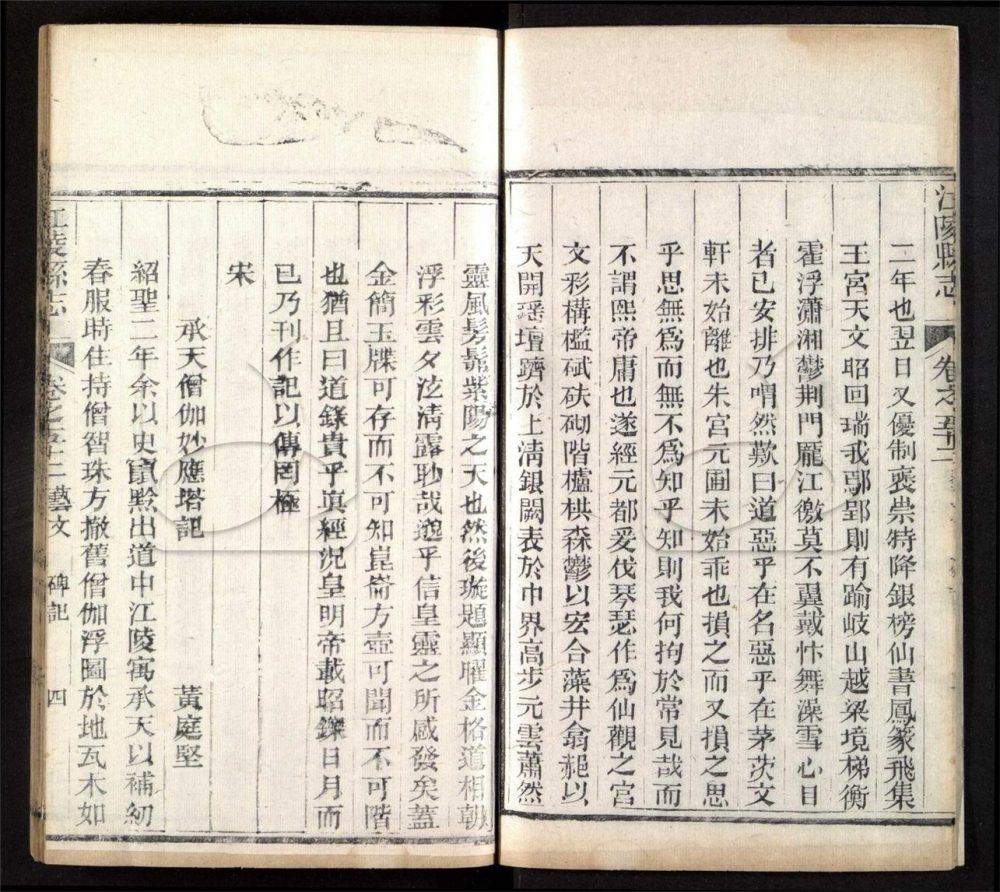 江陵縣志
卷之五十二
二年也翌日又優制褒崇特降銀榜仙書鳳篆飛集
王宮天文昭回瑞我鄢郢則有踰岐山越梁境梯衡
霍浮瀟湘鬱荆門龎江徼莫不翼戴忭舞澡雪心目
者已安排乃喟然歎曰道惡乎在名惡乎在茅茨文
軒未始離也朱宮元圃未始乖也損之而又損之思
乎思無爲而無不爲知乎知則我何拘於常見哉而
不謂熙帝庸也遂經元都爰伐琴瑟作爲仙觀之宮
文彩構檻碔砆砌階櫨栱森鬱以宏合藻井翕赩以
天開瑶壇躋於上淸銀闕表於中界高步元雲蕭然
靈風髣髴紫陽之天也然後璇題顯曜金格道相朝
浮彩雲夕泫淸露眇哉邈乎信皇靈之所感發矣蓋
金簡玉牒可存而不可知崑崙方壺可聞而不可階
也猶且曰道錄貴乎眞經況皇明帝載昭鑠日月而
已乃刊作記以傳罔極
宋
承天僧伽妙應塔記 黃庭堅
紹聖二年余以史竄黔出道中江陵寓承天以補紉
春服時住持僧智珠方撤舊僧伽浮圖於地瓦木如
江陵縣志
卷之五十二 藝文 碑記 四